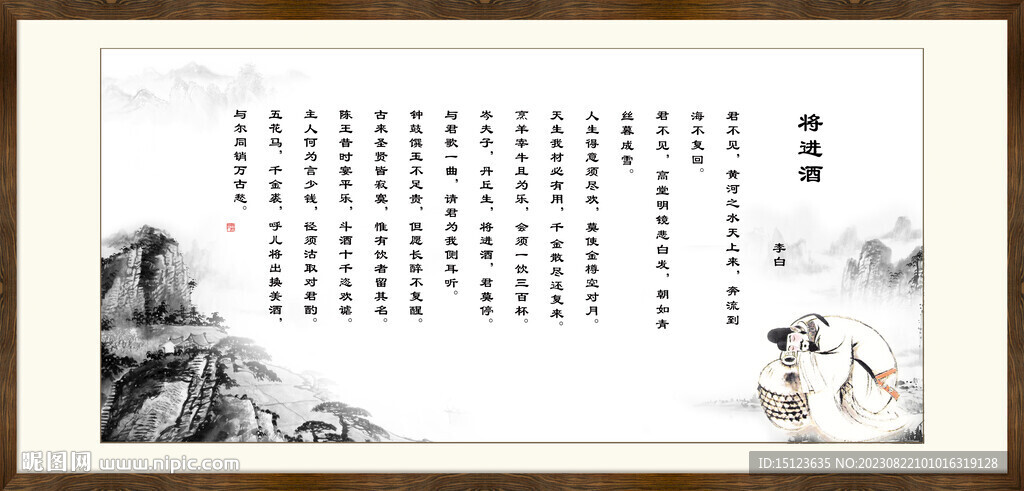 将进酒
李白
君不见，黄河之水天上来，奔流到
海不复回。
君不见，高堂明镜悲白发，朝如青
丝暮成雪。
人生得意须尽欢，莫使金樽空对月。
天生我材必有用，千金散尽还复来。
烹羊宰牛且为乐，会须一饮三百杯。
岑夫子，丹丘生，将进酒，君莫停。
与君歌一曲，请君为我侧耳听。
钟鼓馔玉不足贵，但愿长醉不复醒。
古来圣贤皆寂寞，惟有饮者留其名。
陈王昔时宴平乐，斗酒十千恣欢谑。
主人何为言少钱，径须沽取对君酌。
五花马，千金裘，呼儿将出换美酒，
与尔同销万古愁。
昵图网 www.nipic.com
ID:15123635 NO:20230822101016319128